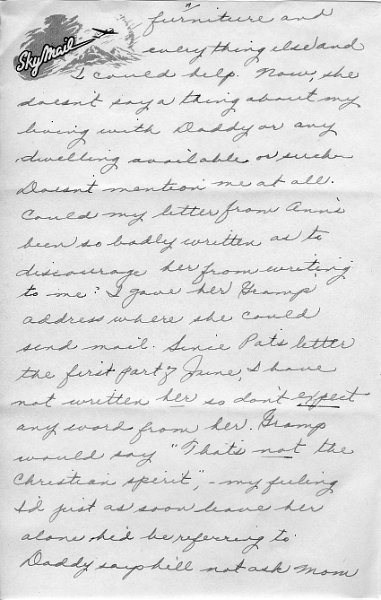 Sky Mail
furniture and
everything else and
I could help. Now, she
doesn't say a thing about my
living with Daddy or any
dwelling available or such.
Doesn't mention me at all.
Could my letter from Ann's
been so badly written as to
discourage her from writing
to me? I gave her Gramp
address where she could
send mail. Since Pats letter
the first part of June, I have
not written her so don't expect
any word from her. Gramp
would say "Thats not the
Christian spirit", - my feeling
I'd just as soon leave her
alone he'd be referring to.
Daddy says hill not ask Mom